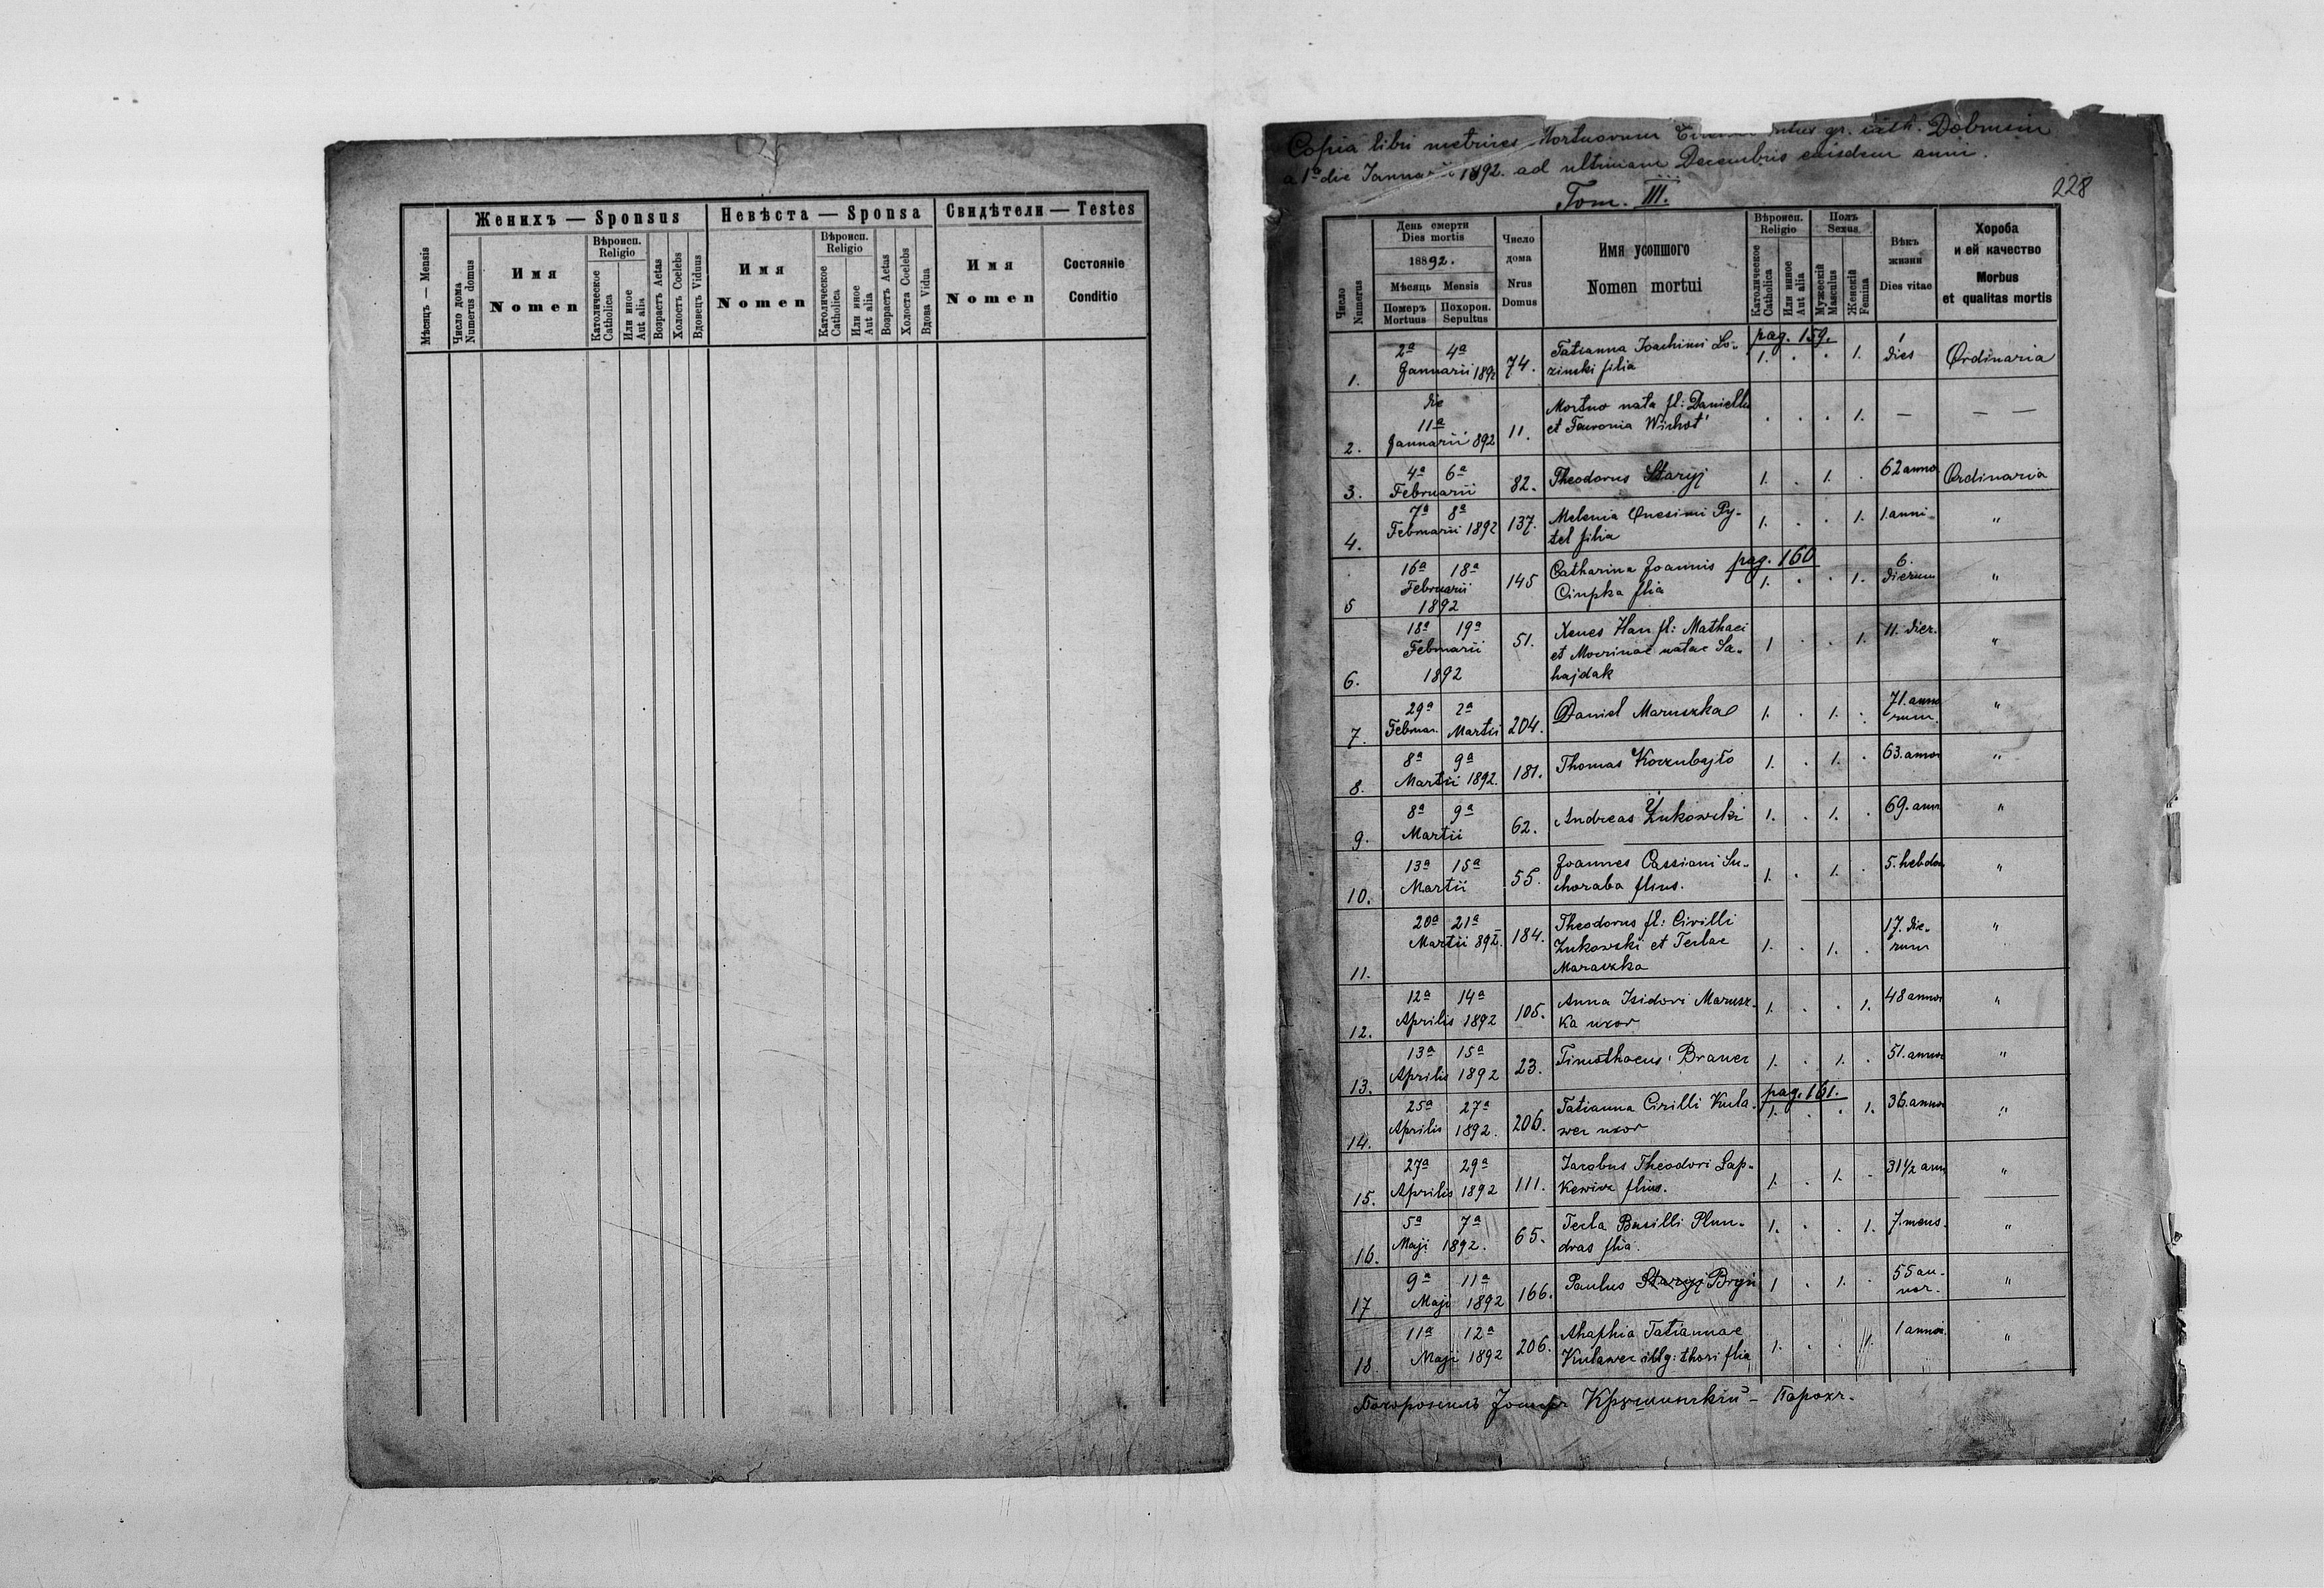 Женихъ — Sponsus
Невѣста — Sponsa
Свидѣтели — Testes
Мѣсяцъ — Mensis
Число дома
Numerus domus
Имя
Nomen
Вѣроисп.
Religio
Католическое
Catholica
Или инное
Aut alia
Возрастъ Aetas
Холостъ Coelebs
Вдовецъ Viduus
Имя
Nomen
Вѣроисп.
Religio
Католическое
Catholica
Или иное
Aut alia
Возрастъ Aetas
Холоста Coelebs
Вдова Vidua
Имя
Nomen
Состоянiе
Conditio
Copia libri metrices Mortuorum gr. cath. Dobrusin
a 1ª die Januarii 1892. ad ultimam Decembris eiusdem anni.
Tom. III.
228
Число
Numerus
День смерти
Dies mortis
1892.
Мѣсяць Mensis
Померъ
Mortuus
Похорон.
Sepultus
Число
дома
Nrus
Domus
Имя усопшого
Nomen mortui
Вѣроисп.
Religio
Католическое
Catholica
Или инное
Aut alia
Полъ
Sexus
Мужескій
Masculus
Женскій
Femina
Вѣкъ
жизни
Dies vitae
Хороба
и ей качество
Morbus
et qualitas mortis
pag. 159.
1. 2ª 4ª Januarii 1892 74. Tatianna Joachimi Lo-
zinski filia 1. . . 1. 1 dies Ordinaria
2. die 11ª Januarii 892 11. Mortuo nata fl: Danielis
et Fevronia . . . 1. — — —
3. 4ª 6ª Februarii 82. Theodorus Staryj 1. . 1. . 62 anno Ordinaria
4. 7ª 8ª Februarii 1892 137. Melenia Onesimi Py-
tel filia 1. . . 1. 1. anni "
pag. 160
5 16ª 18ª Februarii 1892 145 Catharina Joannis
Ciupka flia 1. . . 1. 6. dierum "
6. 18ª 19ª Februarii 1892 51. Xenes Han fl: Mathaei
et natae Sa-
hajdak 1 . . 1. 11. dier. "
7. 29ª Februar. 2ª Martii 204. Daniel Maruszka 1. . 1. . 71. anno
rum. "
8. 8ª 9ª Martii 1892. 181. Thomas Korzubajło 1. . 1. . 63. anno "
9. 8ª 9ª Martii 62. Andreas Żukowski 1. . 1. . 69. ann "
10. 13ª 15ª Martii 55. Joannes Cassiani Su-
choraba flius. 1. . 1. . 5. hebdo "
11. 20ª 21ª Martii 892. 184. Theodorus fl: Cirilli
Żukowski et Teclae
Maruszka 1. . 1. . 17. die-
rum "
12. 12ª 14ª Aprilis 1892 105. Anna Isidori Marusz-
ka uxor 1. . . 1. 48 anno "
13. 13ª 15ª Aprilis 1892 23. Timothaeus Braner 1. . 1. . 51. anno "
pag. 161.
14. 25ª 27ª Aprilis 1892. 206. Tatianna Cirilli Kula-
wec uxor 1. . . 1. 36. anno "
15. 27ª 29ª Aprilis 1892 111. Jacobus Theodori Lap-
kewicz flius. 1. . 1. . 31 1/2 ann "
16. 5ª 7ª Maji 1892. 65. Tecla Basilli Plun-
dras flia. 1. . . 1. 7. mens. "
17 9ª 11ª Maji 1892 166. Paulus Staryj Bryń 1 . 1. . 55 an-
nor. "
18 11ª 12ª Maji 1892 206. Ahaphia Tatiannae
Kulawec illg: thori flia 1. . . 1. 1 annor. "
Парохъ.